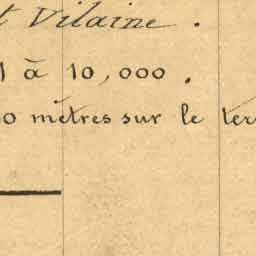 t Vilaine.
1 à 10,000.
0 mètres sur le ter